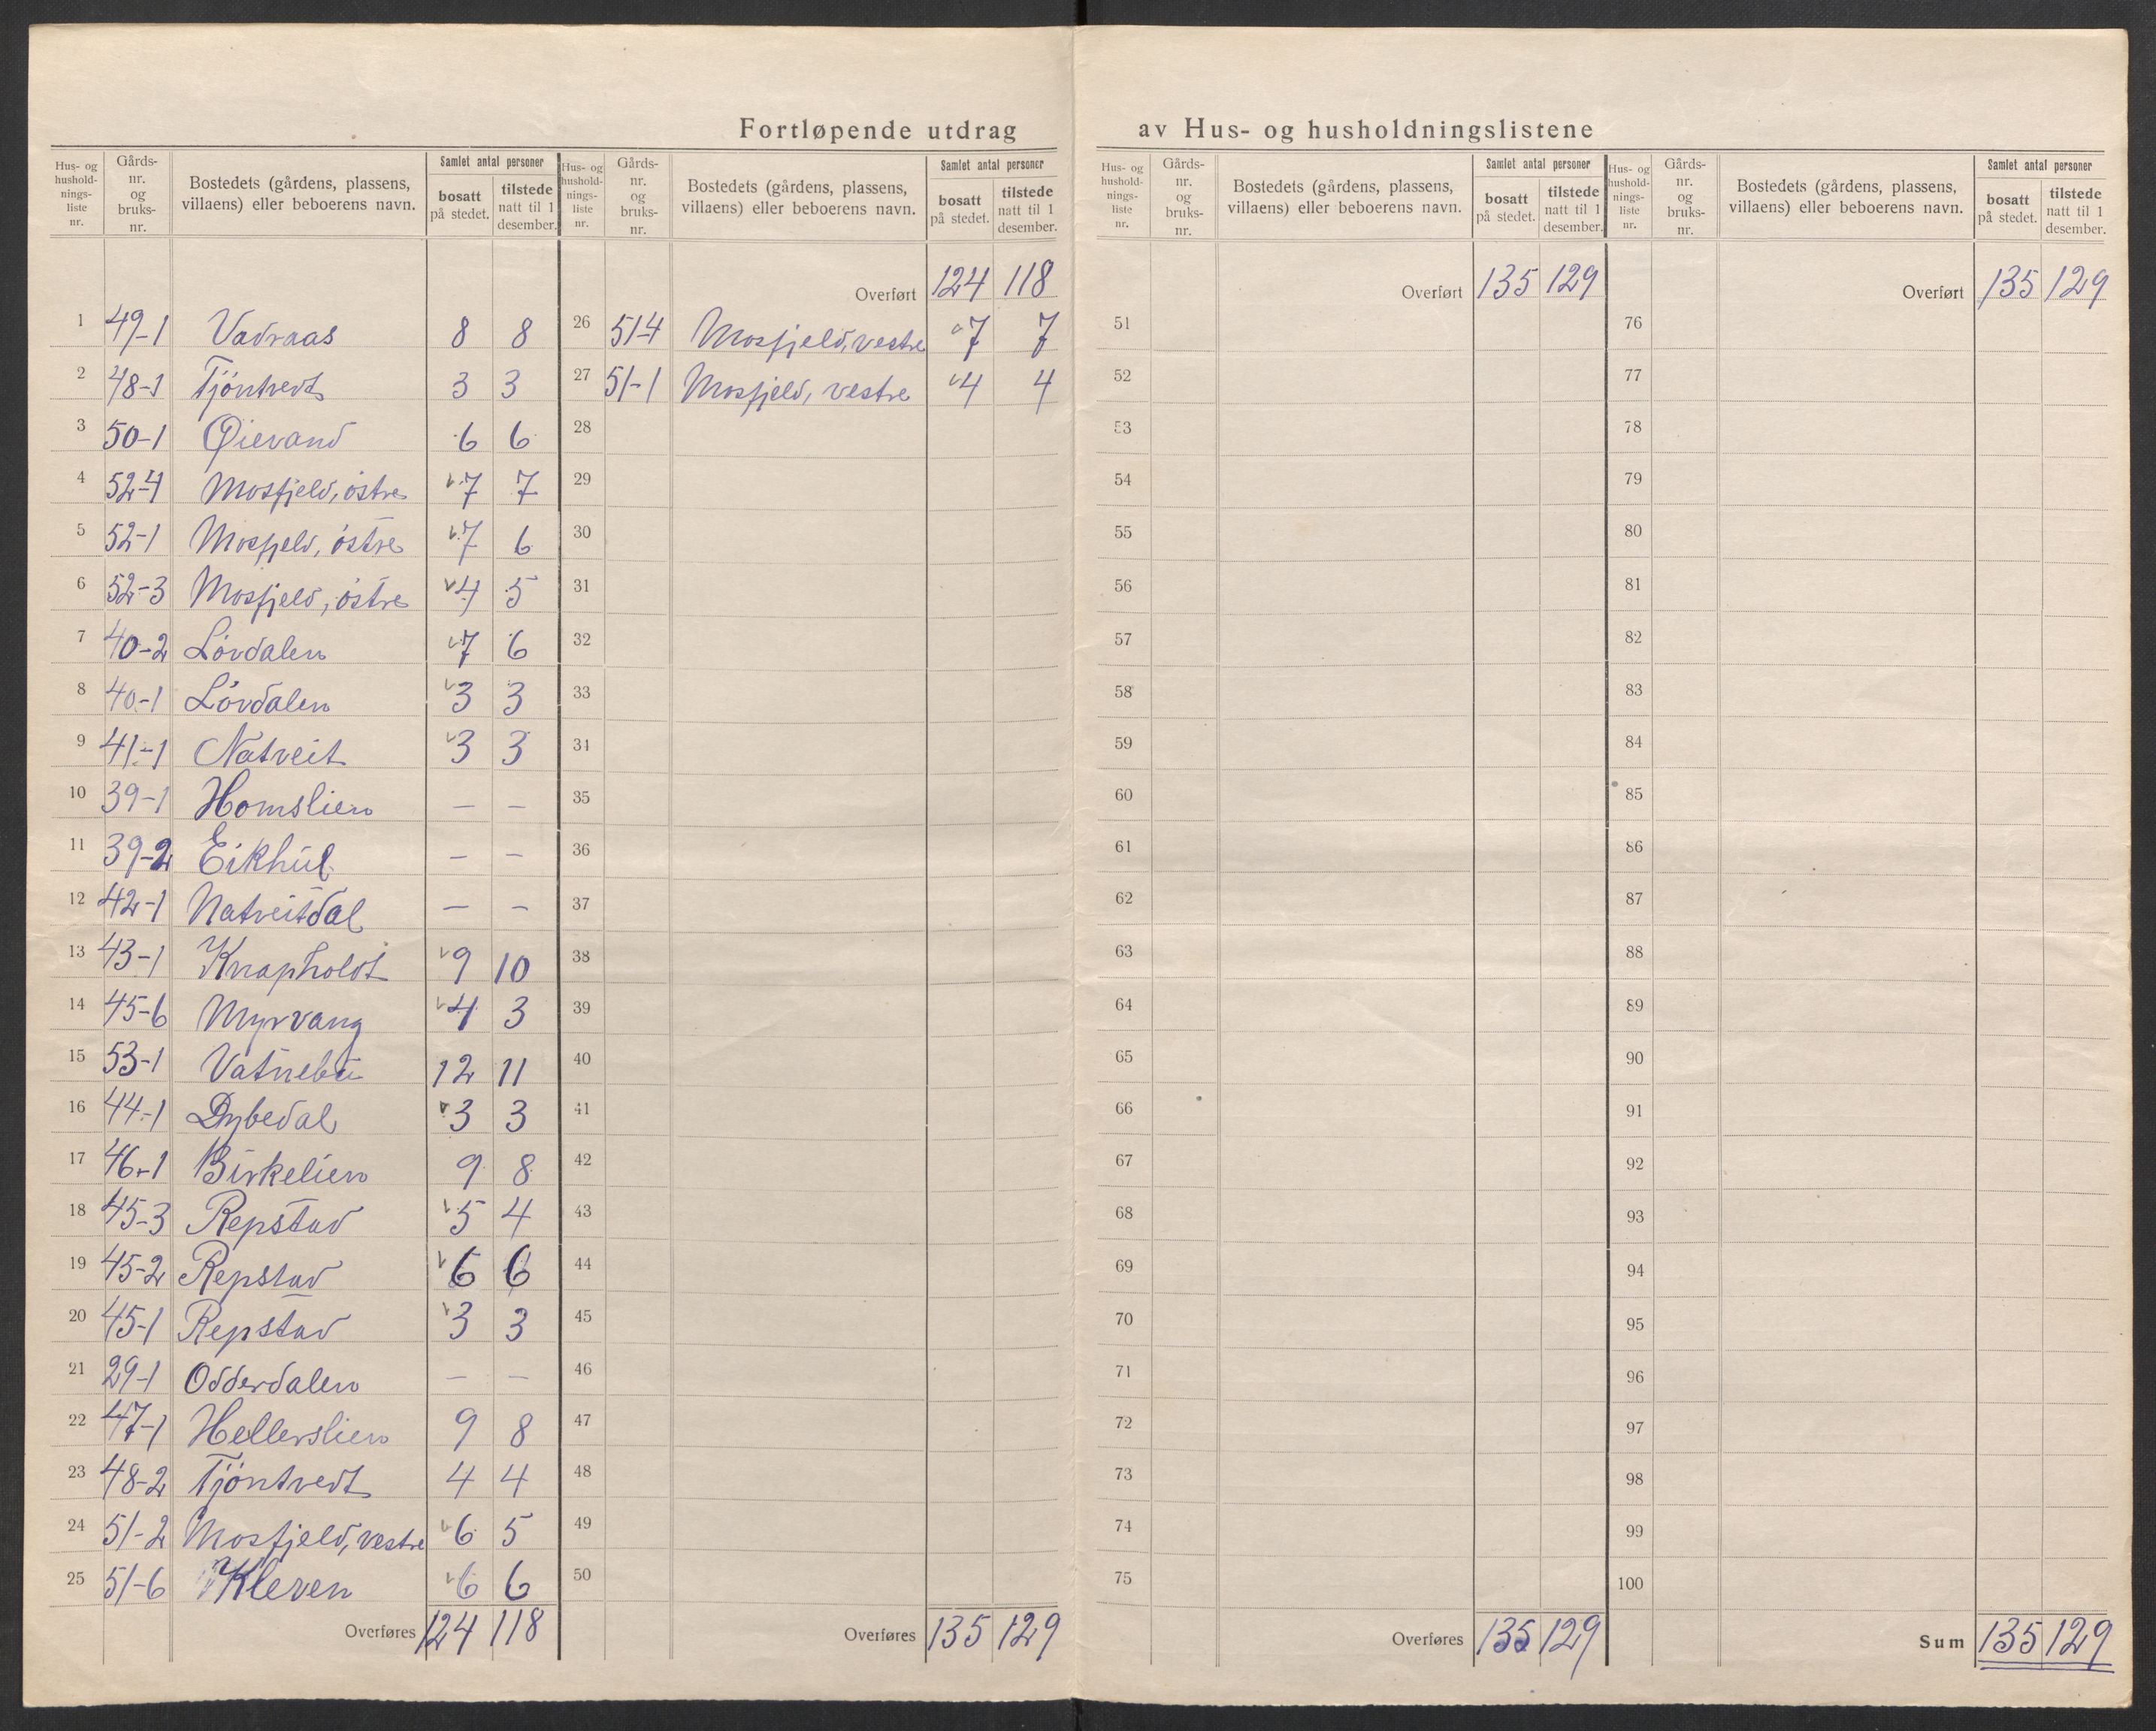 Fortløpende utdrag av Hus- og husholdningslistene
Hus- og husholdnings-liste nr. | Gårds-nr. og bruks-nr. | Bostedets (gårdens, plassens, villaens) eller beboerens navn. | Samlet antal personer bosatt på stedet. | tilstede natt til 1 desember.
1 49-1 Vadraas 8 8
2 48-1 Tjöntvedt 3 3
3 50-1 Øievand 6 6
4 52-4 Mosfjeld, östre 7 7
5 52-1 Mosfjeld, östre 7 6
6 52-3 Mosfjeld, östre 4 5
7 40-2 Lövdalen 7 6
8 40-1 Lövdalen 3 3
9 41-1 Natveit 3 3
10 39-1 Homslien — —
11 39-2 Eikhul — —
12 42-1 Natveitdal — —
13 43-1 Knapholdt 9 10
14 45-6 Myrvang 4 3
15 53-1 Vatnebu 12 11
16 44-1 Dybedal 3 3
17 46-1 Birkelien 9 8
18 45-3 Repstad 5 4
19 45-2 Repstad 6 6
20 45-1 Repstad 3 3
21 29-1 Odderdalen — —
22 47-1 Hellerslien 9 8
23 48-2 Tjöntvedt 4 4
24 51-2 Mosfjeld, vestre 6 5
25 51-6 Kleven 6 6
Overføres 124 118
Hus- og husholdnings-liste nr. | Gårds-nr. og bruks-nr. | Bostedets (gårdens, plassens, villaens) eller beboerens navn. | Samlet antal personer bosatt på stedet. | tilstede natt til 1 desember.
Overført 124 118
26 51-4 Mosfjeld, vestre 7 7
27 51-1 Mosfjeld, vestre 4 4
28
29
30
31
32
33
34
35
36
37
38
39
40
41
42
43
44
45
46
47
48
49
50
Overføres 135 129
Hus- og husholdnings-liste nr. | Gårds-nr. og bruks-nr. | Bostedets (gårdens, plassens, villaens) eller beboerens navn. | Samlet antal personer bosatt på stedet. | tilstede natt til 1 desember.
Overført 135 129
51
52
53
54
55
56
57
58
59
60
61
62
63
64
65
66
67
68
69
70
71
72
73
74
75
Overføres 135 129
Hus- og husholdnings-liste nr. | Gårds-nr. og bruks-nr. | Bostedets (gårdens, plassens, villaens) eller beboerens navn. | Samlet antal personer bosatt på stedet. | tilstede natt til 1 desember.
Overført 135 129
76
77
78
79
80
81
82
83
84
85
86
87
88
89
90
91
92
93
94
95
96
97
98
99
100
Sum 135 129